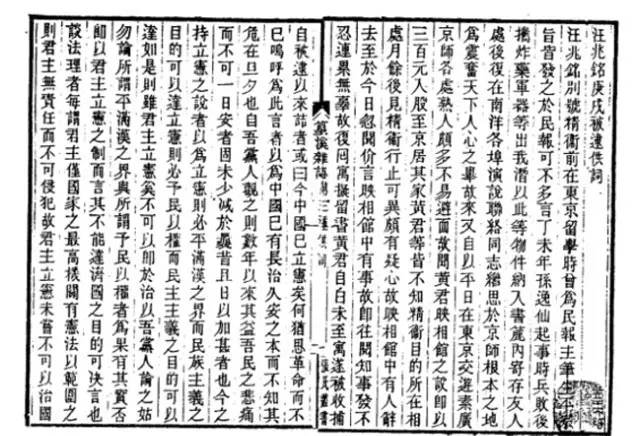 汪兆銘庚戌被逮供詞
汪兆銘別號精衛前在東京留學時曾爲民報主筆生平宗
旨皆發之於民報可不多言丁未年孫逸仙起事時兵敗後
携炸藥軍器等出我潛以此等物件納入書簏內寄存友人
處後復在南洋各埠演說聯絡同志繼思於京師根本之地
爲震奮天下人心之舉故來又自以平日在東京交遊素廣
京師各處熟人頗多不易避面故聞黃君映相館之設即以
三百元入股至京居其家黃君等皆不知精衛目的所在相
處月餘後見精衛行止可異頗有疑心故映相館中有人辭
去至於今日忽聞价言映相館中有事故即往閱知事發不
忍連累無辜故復回寓擬留書黃君自白未至寓遂被收捕
自被逮以來詰者或曰今中國已立憲矣何猶思革命而不
已嗚呼爲此言者以爲中國已有長治久安之本而不知其
危在旦夕也自吾黨人觀之則數年以來其益吾民之悲痛
而不可一日安者固未少減於曩昔且日以加甚者也今之
持立憲之說者以爲立憲則必平滿漢之界而民族主義之
目的可以達立憲則必予民以權而民主主義之目的亦可
達如是則雖君主立憲奚不可以即於治以吾黨人論之姑
勿論所謂平滿漢之界與所謂予民以權者爲果有其實否
即以君主立憲之制而言其不能達濟國之目的可決言也
談法理者每謂君主僅國家之最高機關有憲法以範圍之
則君主無責任而不可侵犯故君主立憲未嘗不可以治國